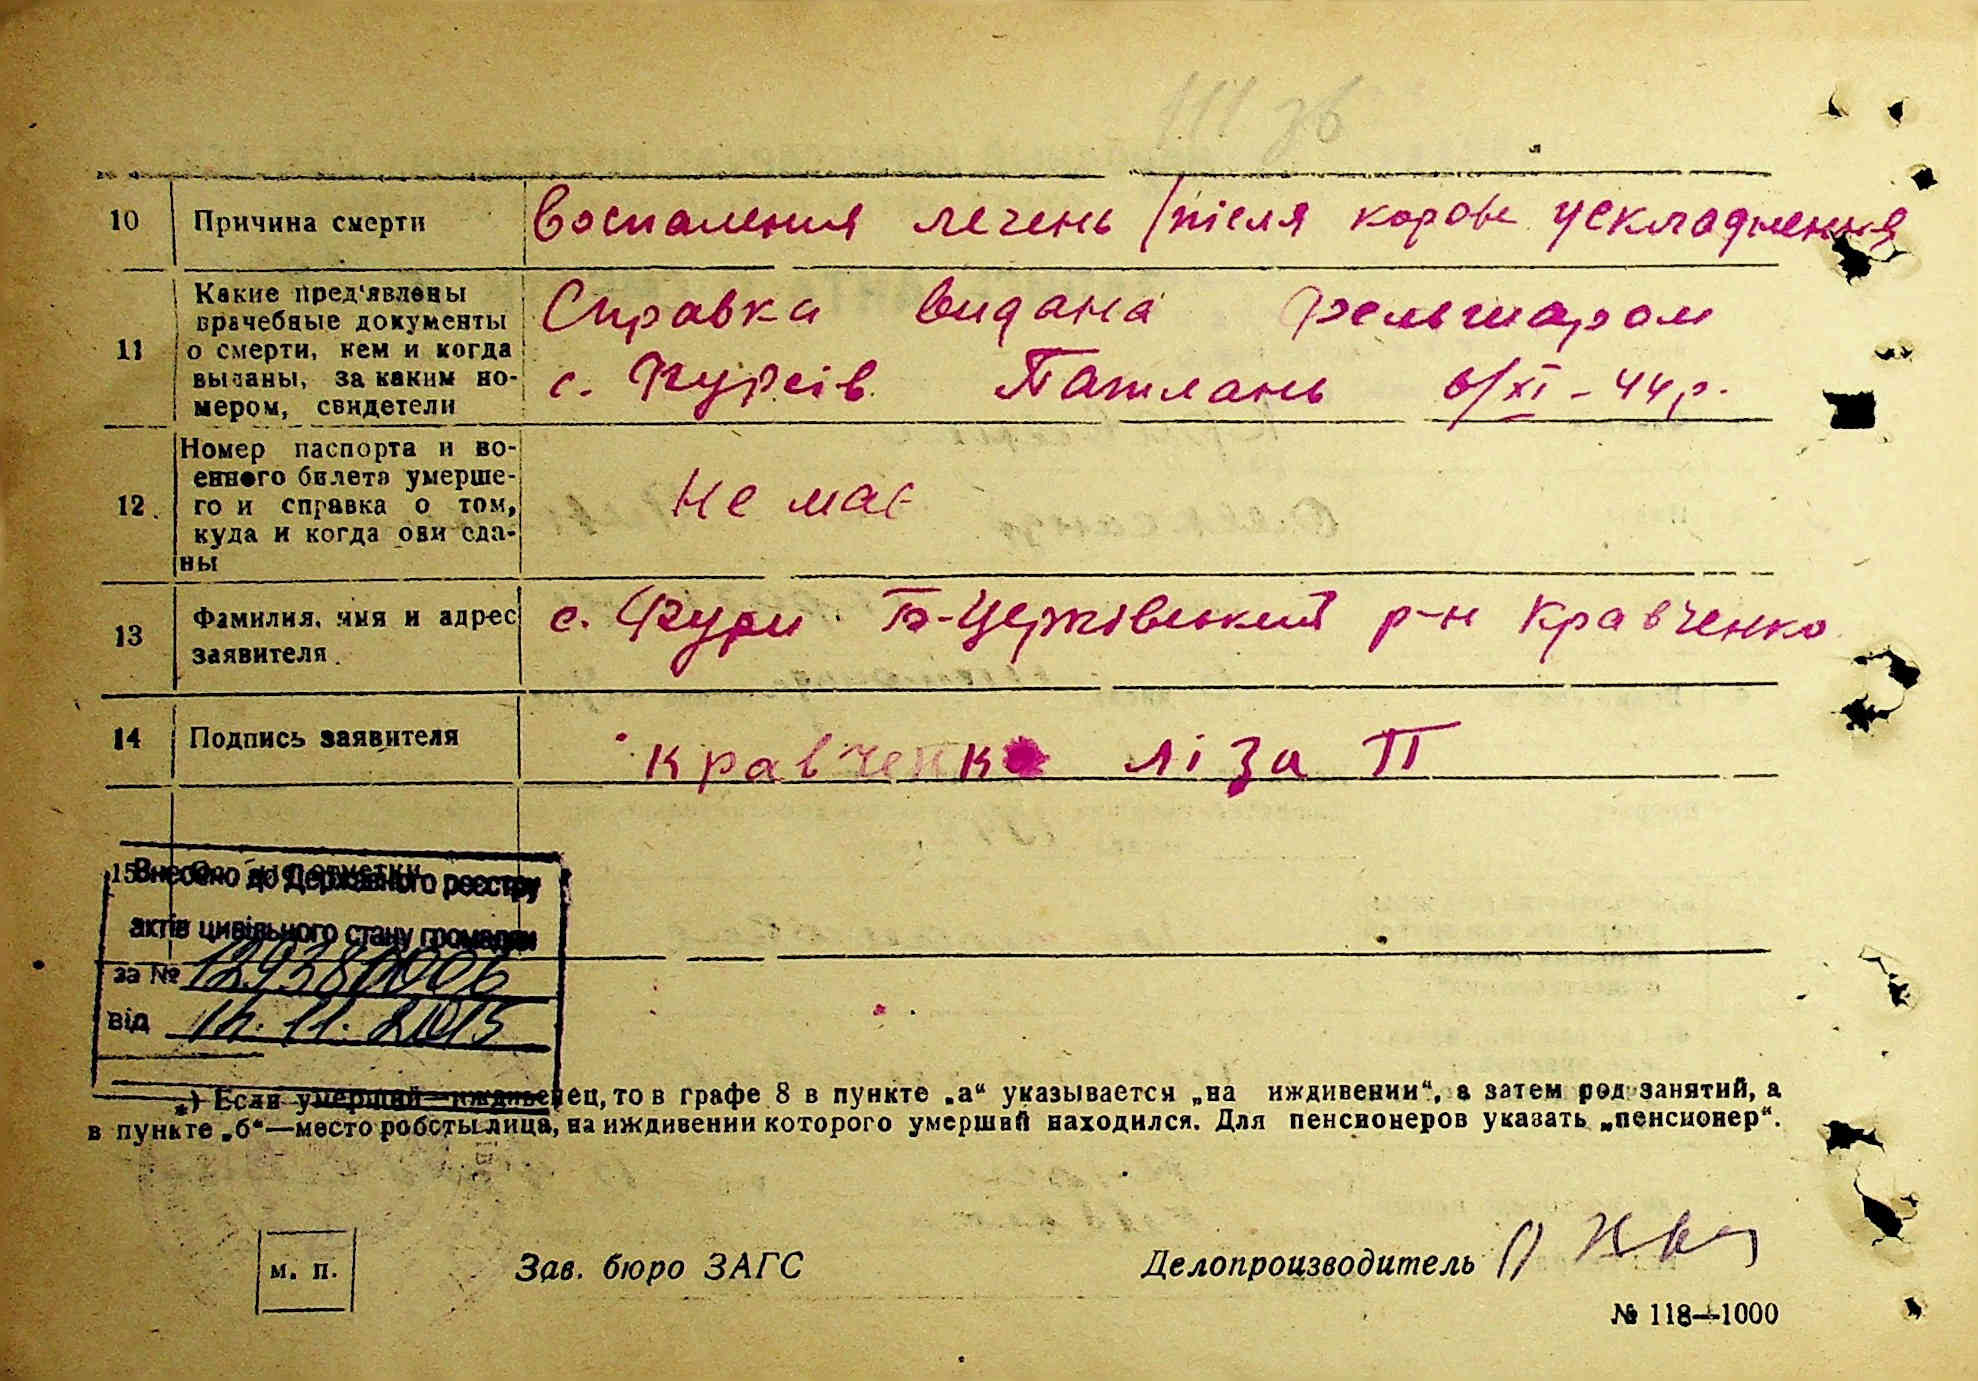 10 Причина смерти Воспаления лечень /після корове ускладнення
11 Какие пред'явлены врачебные документы о смерти, кем и когда выданы, за каким номером, свидетели
Справка видана фельшаром
с. Фурсів 6/XI - 44 р.
12. Номер паспорта и военного билета умершего и справка о том, куда и когда они сданы
Не має
13 Фамилия, имя и адрес заявителя.
с. Фурси Б-Церківський р-н Кравченко
14 Подпись заявителя
Кравченко Ліза П
15
Внесено до Державного реєстру
актів цивільного стану громадян
за № 129380006
від 12.11.2015
*) Если умерший—иждивенец, то в графе 8 в пункте „а“ указывается „на иждивении“, а затем род занятий, а
в пункте „б“—место роботы лица, на иждивении которого умерший находился. Для пенсионеров указать „пенсионер“.
м. п.
Зав. бюро ЗАГС
Делопроизводитель
№ 118—1000